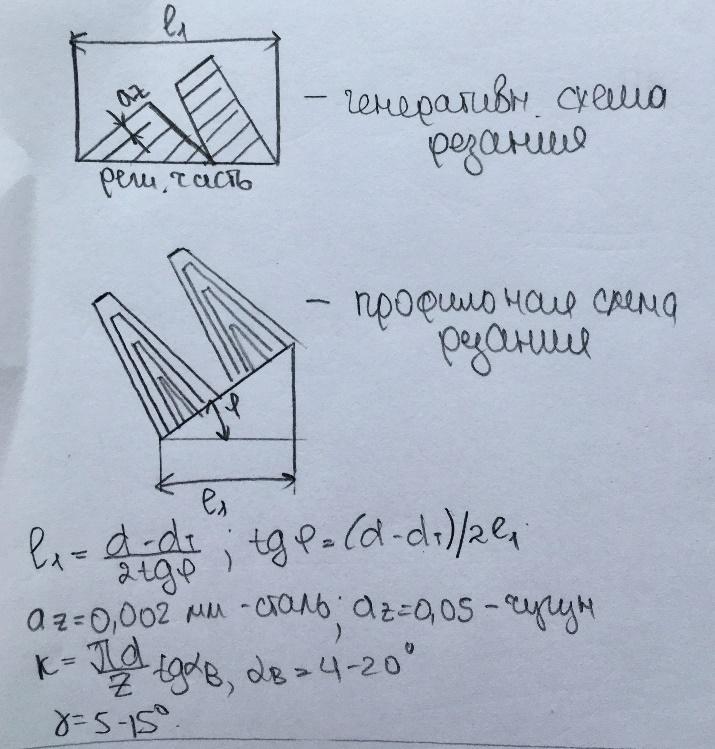 l₁
az
– генеративн. схема
резания
реж. часть
– профильная схема
резания
φ
l₁
l₁ = (d - d₁)/(2tgφ) ; tgφ = (d - d₁)/2l₁
az = 0,002 мм - сталь; az = 0,05 - чугун
к = πd/z tgαв, αв = 4 - 20°
γ = 5 - 15°.